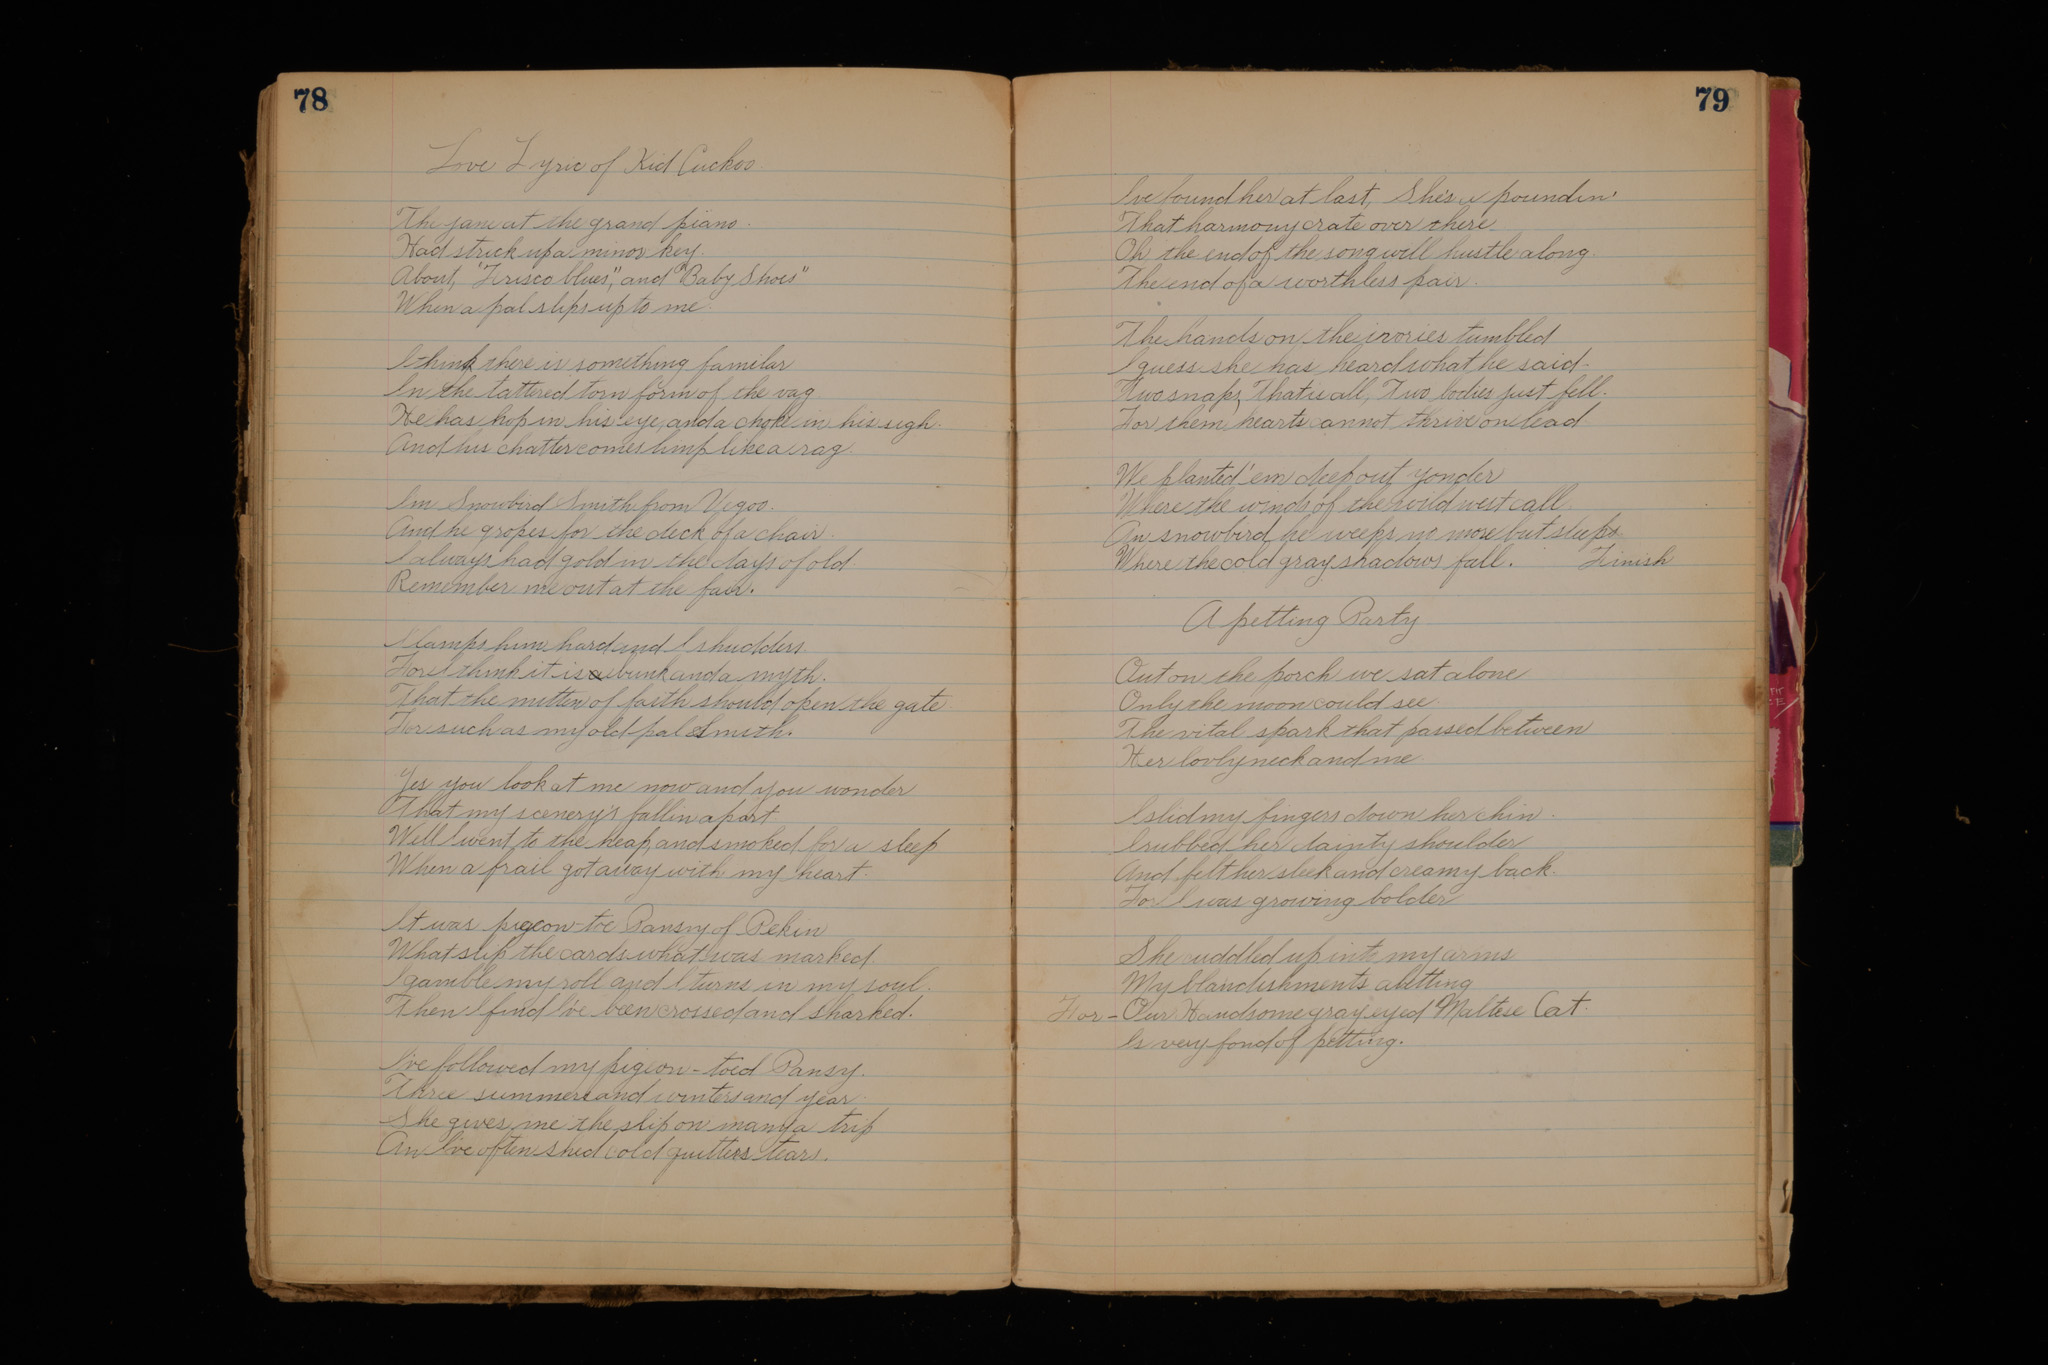 78
Love Lyric of Kid Cuckoo.
The jane at the grand piano.
Had strick up a minor key.
About, "Frisco blues", and "Baby Shoes"
When a pal slips up to me.
I think there is something familar
In the tattered torn form of the vag
He has hop in his eye, and a choke in his sigh.
And his chatter comes limp like a rag.
Im Snowbird Smith from Vegas.
And he gropes for the deck of a chair.
I always had gold in the days of old.
Remember me out at the fair.
I lamps him hard and I shudders
For I think it is a bunk and a myth.
That the mitten of faith should open the gate
For such as my old pal Smith.
Yes you look at me now and you wonder
That my scenery's fallin apart
Well I went to the heap, and smoked for a sleep
When a frail got away with my heart.
It was pigeon-toe Pansy of Pekin
What slip the cards what was marked.
I gamble my roll and I turns in my soul.
Then I find I've been crossed and sharked.
I've followed my pigeon-toed Pansy.
Three summers and winters and year.
She gives me the slip on many a trip
An I've often shed cold quitters tears.
79
I've found her at last, She's a poundin'
That harmony crate over there.
Oh the end of the song will hustle along.
The end of a worthless pair.
The hands on the ivories tumbled
I guess she has heard what he said.
Two snaps, That is all, Two bodies just fell.
For them hearts cannot thrive on lead.
We planted 'em deep out yonder
Where the winds of the wild west call.
An snowbird he weeps no more but sleeps
Where the cold gray shadows fall. Finish
A petting Party
Out on the porch we sat alone
Only the moon could see.
The vital spark that passed between
Her lovly neck and me.
I slid my fingers down her chin.
I rubbed her dainty shoulder
And felt her sleek and creamy back.
For I was growing bolder
She cuddled up into my arms
My blandishments abetting
For - Our Handsome gray eyed Maltese Cat.
Is very fond of petting.